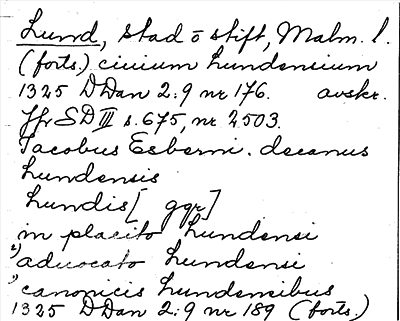 Lund, stad o stift, Malm. l.
(forts.) ciuium lundensium
1325 DDan 2:9 nr 176. avskr.
Jfr SD III s. 675, nr 2503.
Jacobus Esberni. decanus
lundensis
lundis [ ggr]
in placito lundensi
2) aduocato lundensi
1) canonicis lundensibus
1325 DDan 2:9 nr 189 (forts.)